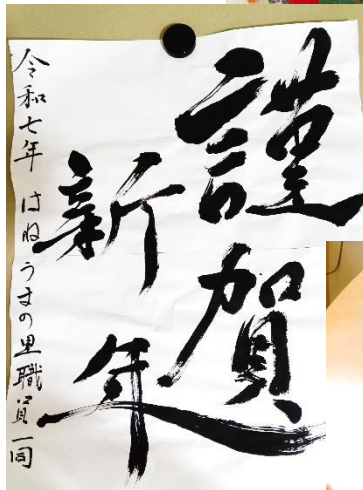 謹賀
新年
令和七年 はねうまの里職員一同